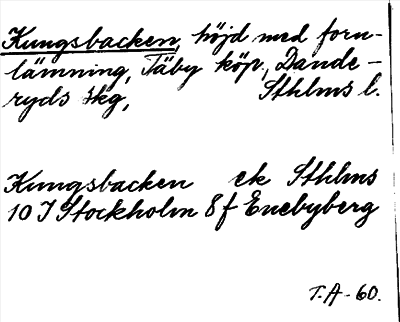 Kungsbacken, höjd med forn-
lämning, Täby köp., Dande-
ryds skg, Sthlms l.
Kungsbacken ek Sthlms
10 I Stockholm 8 f Enebyberg
T.A-60.